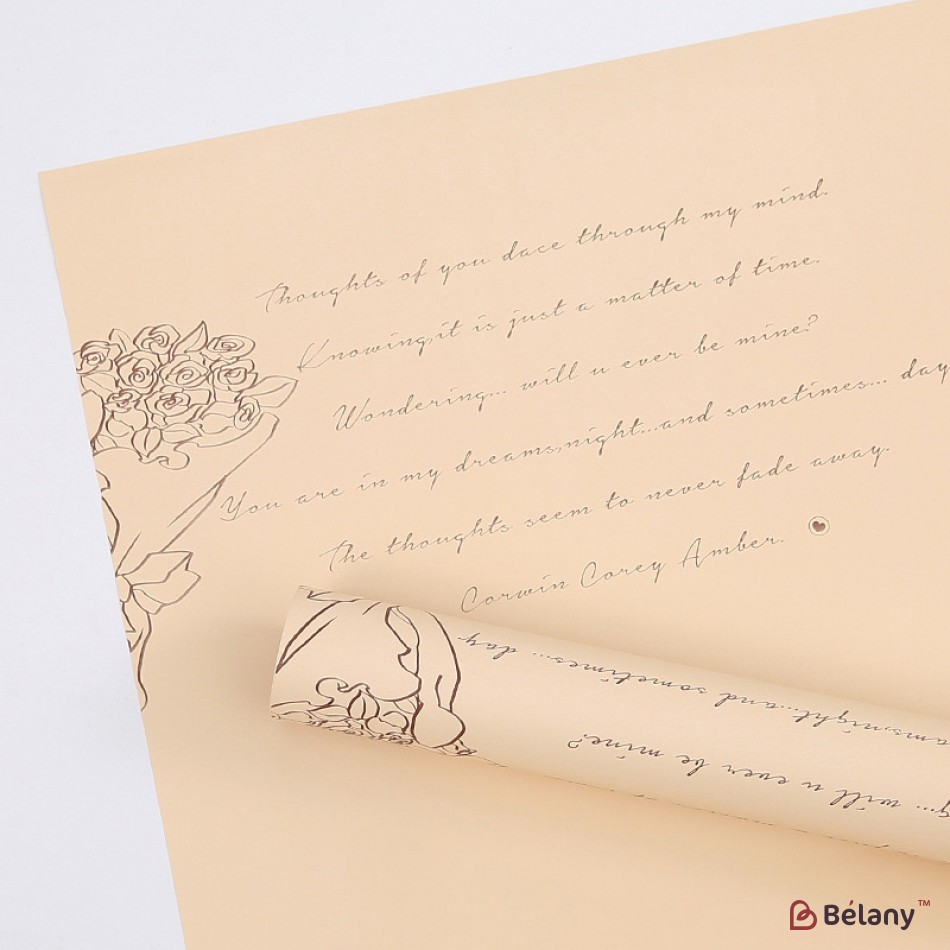 Thoughts of you dace through my mind.
Knowing,it is just a matter of time.
Wondering... will u ever be mine?
You are in my dreams,night...and sometimes... day
The thoughts seem to never fade away.
Corwin Corey Amber.
ams,night...and sometimes... day
g... will u ever be mine?
Bélany™